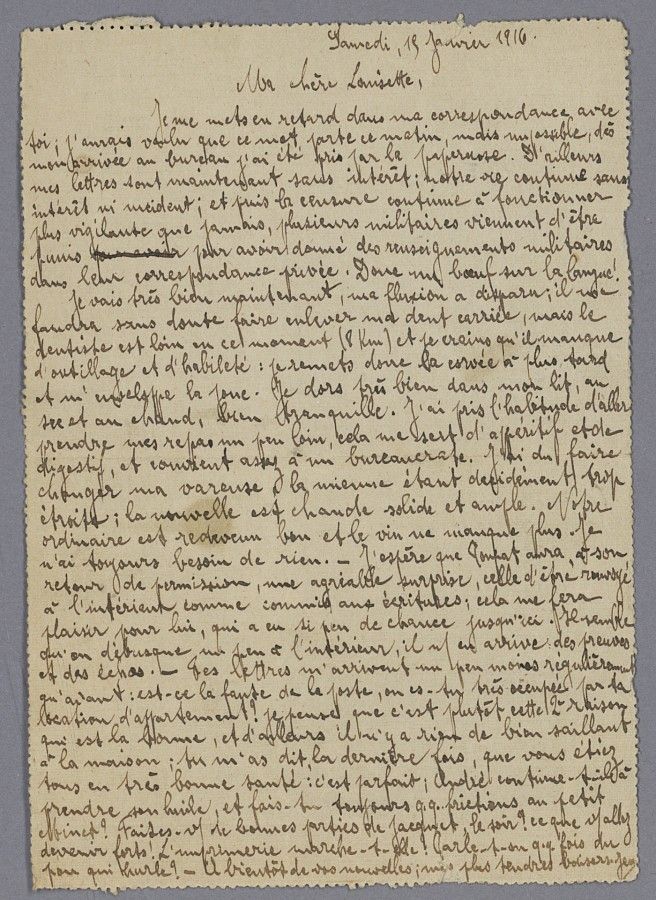 Samedi, 15 Janvier 1916.
Ma chère Louisette,
Je me mets en retard dans ma correspondance avec
toi; j'aurais voulu que ce mot parte ce matin, mais impossible, dès
mon arrivée au bureau j'ai été pris par la paperasse. D'ailleurs
mes lettres sont maintenant sans intérêt; notre vie continue sans
intérêt ni incident; et puis la censure continue à fonctionner
plus vigilante que jamais, plusieurs militaires viennent d'être
punis pour avoir par avoir donné des renseignements militaires
dans leur correspondance privée. Donc un bœuf sur la langue!
Je vais très bien maintenant, ma fluxion a disparu; il me
faudra sans doute faire enlever ma dent carriée, mais le
dentiste est loin en ce moment (8 Km) et je crains qu'il manque
d'outillage et d'habileté: je remets donc la corvée à plus tard
et m'enveloppe la joue. Je dors très bien dans mon lit, au
sec et au chaud, bien tranquille. J'ai pris l'habitude d'aller
prendre mes repas un peu loin, cela me sert d'apéritif et de
digestif, et convient assez à un bureaucrate. J'ai du faire
changer ma vareuse, la mienne étant decidément trop
étroite; la nouvelle est chaude solide et ample. Notre
ordinaire est redevenu bon et le vin ne manque plus. Je
n'ai toujours besoin de rien. — J'espère que aura, à son
retour de permission, une agréable surprise, celle d'être renvoyé
à l'intérieur comme commis aux écritures; cela me fera
plaisir pour lui, qui a eu si peu de chance jusqu'ici. Il semble
qu'on débusque un peu à l'intérieur, il n/ en arrive des preuves
et des échos. — Tes lettres m'arrivent un peu moins régulièrement
qu'avant: est-ce la faute de la poste, ou es-tu très occupée par ta
location d'appartement? je pense que c'est plutôt cette 2e raison
qui est la bonne, et d'ailleurs il n'y a rien de bien saillant
à la maison; tu m'as dit, la dernière fois, que vous étiez
tous en très bonne santé: c'est parfait; André continue-t-il à
prendre son huile, et fais-tu toujours q.q. frictions au petit
? Faites-v/ de bonnes parties de jacquet le soir? ce que v/ allez
devenir forts! L'imprimerie marche-t-elle? Parle-t-on q.q. fois du
pou qui hurle? — A bientôt de vos nouvelles; mes plus tendres baisers.